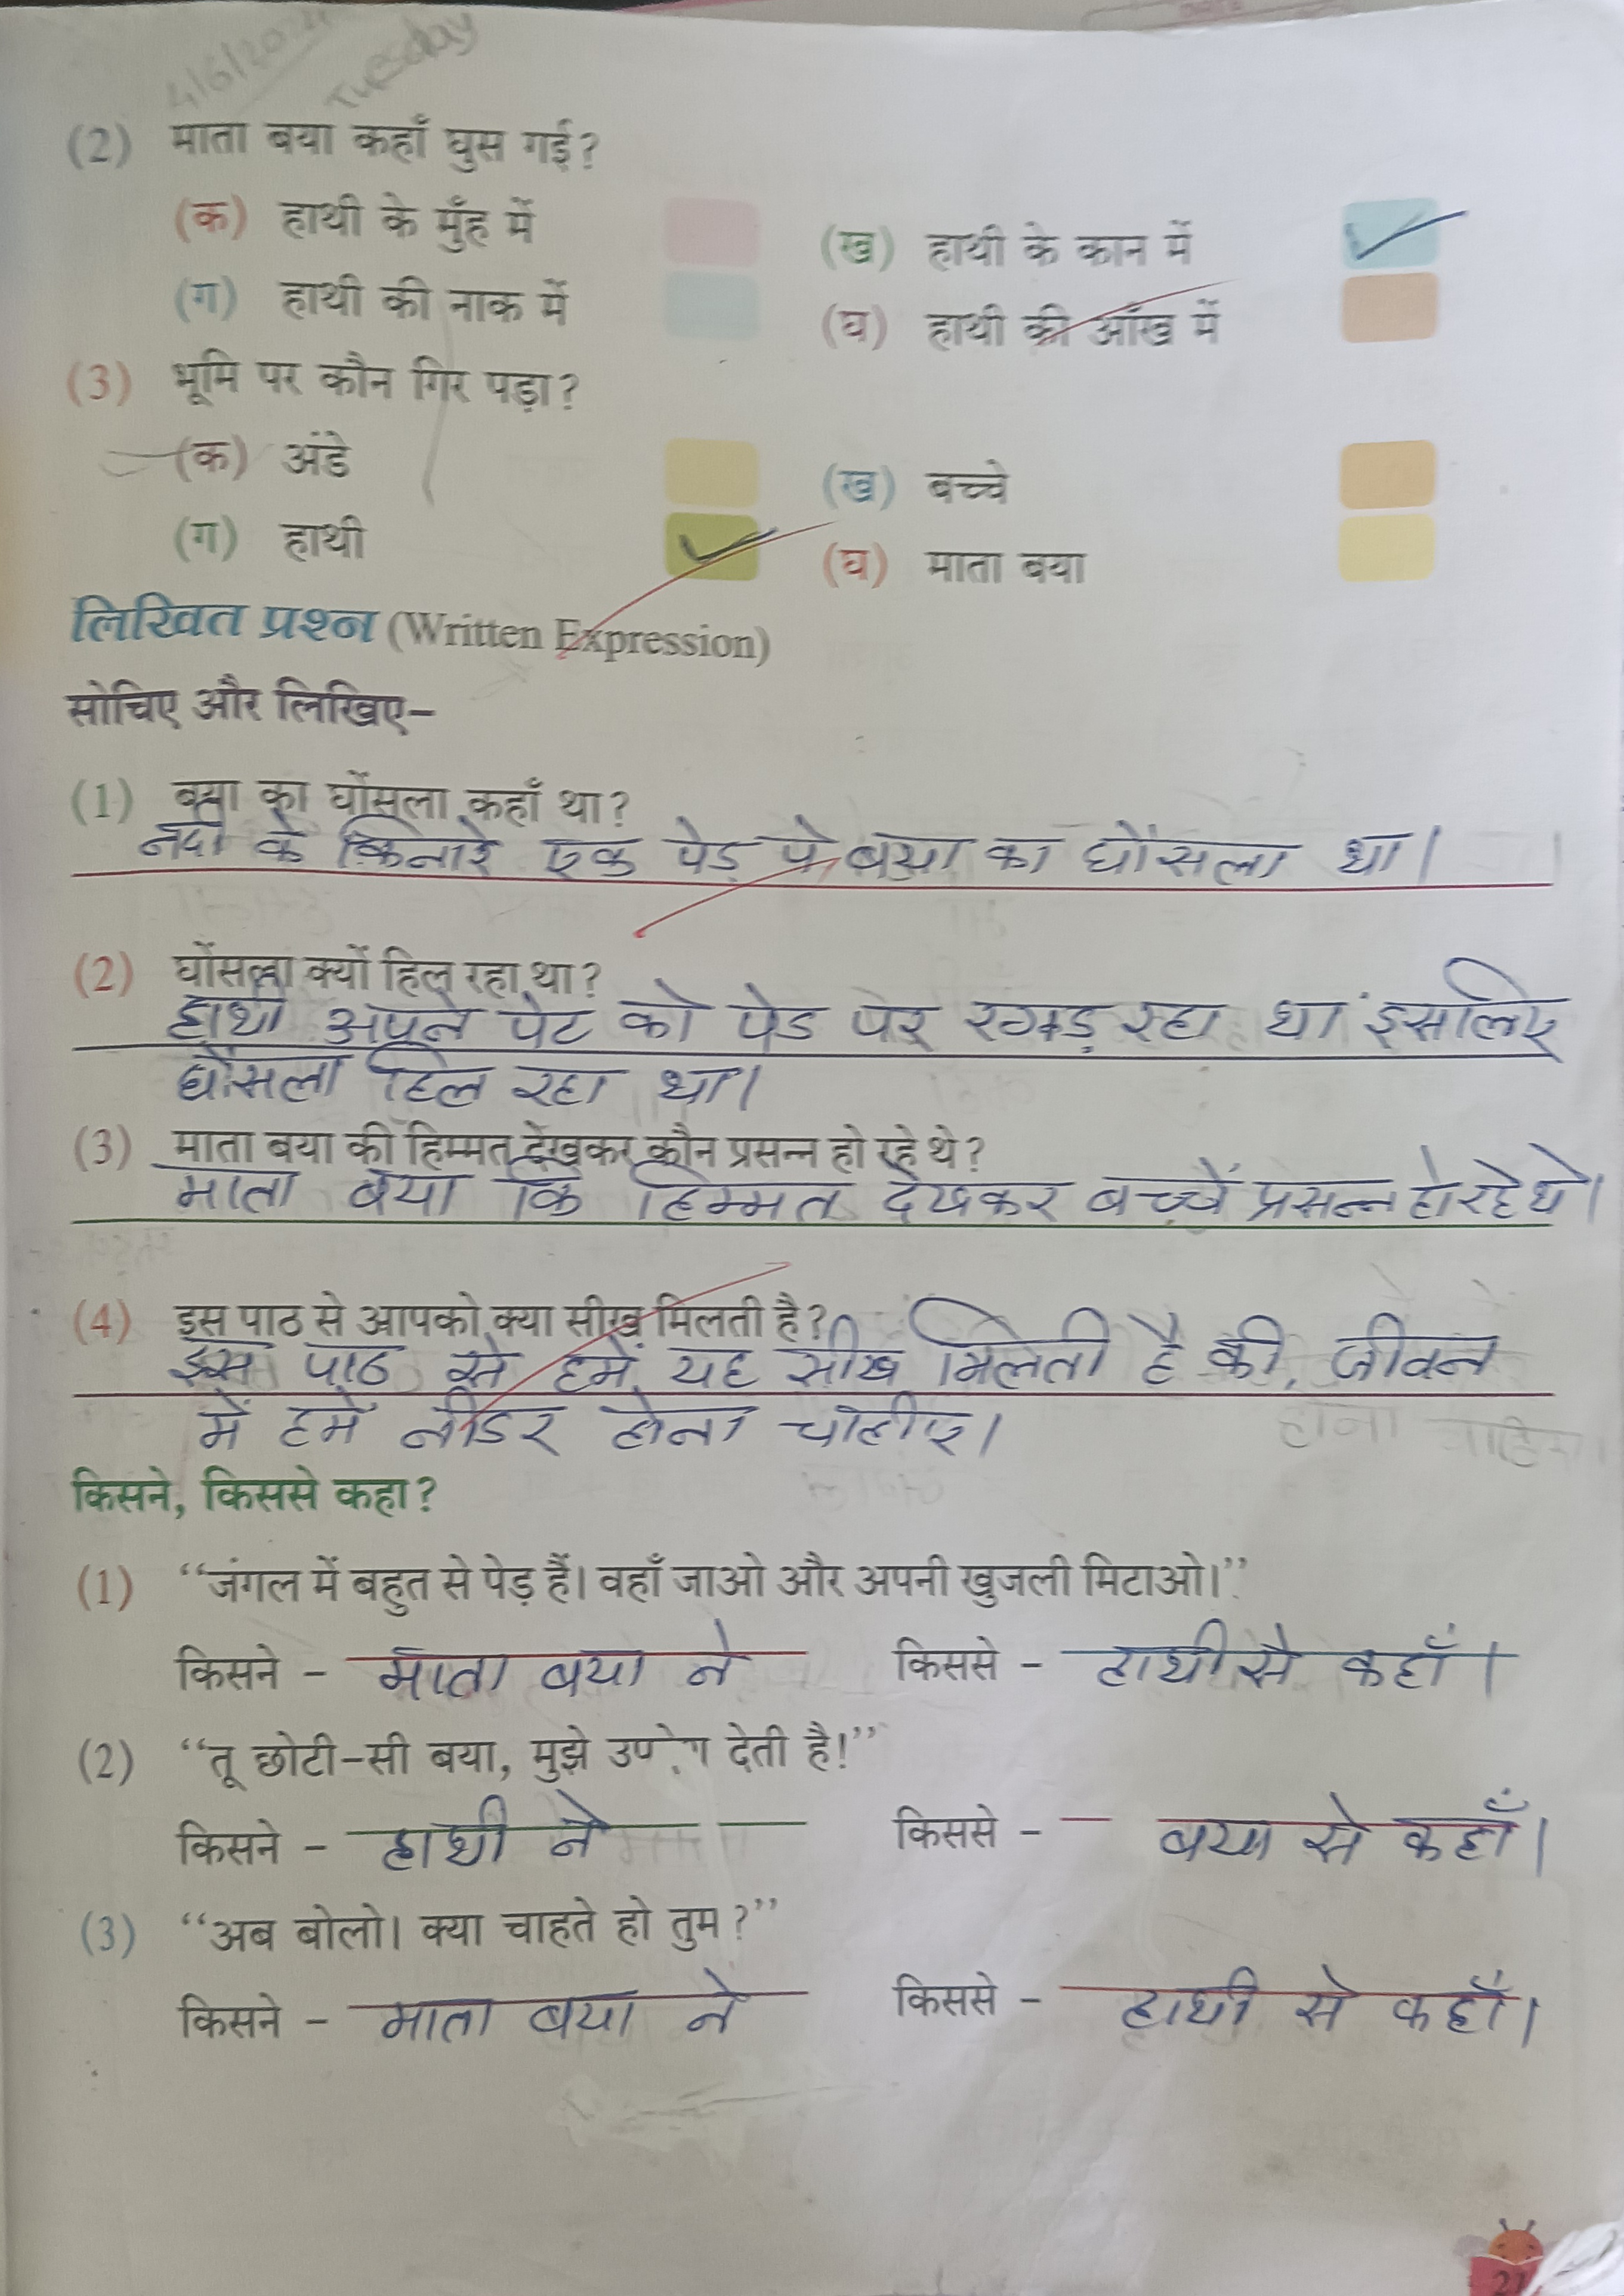 4/6/202
Tuesday
(2) माता बया कहाँ घुस गई?
(क) हाथी के मुँह में (ख) हाथी के कान में
(ग) हाथी की नाक में (घ) हाथी की आँख में
(3) भूमि पर कौन गिर पड़ा?
(क) अंडे (ख) बच्चे
(ग) हाथी (घ) माता बया
लिखित प्रश्न (Written Expression)
सोचिए और लिखिए–
(1) बया का घोंसला कहाँ था?
नदी के किनारे एक पेड़ पे बया का घोंसला था।
(2) घोंसला क्यों हिल रहा था?
हाथी अपने पेट को पेड पेर रगड़ रहा था इसलिए
घोंसला हिल रहा था।
(3) माता बया की हिम्मत देखकर कौन प्रसन्न हो रहे थे?
माता बया कि हिम्मत देखकर बच्चें प्रसन्न हो रहे थे।
(4) इस पाठ से आपको क्या सीख मिलती है?
इस पाठ से हमें यह सीख मिलती है की, जीवन
में हमें नीडर होना चाहीए।
होना चाहिए।
किसने, किससे कहा?
(1) “जंगल में बहुत से पेड़ हैं। वहाँ जाओ और अपनी खुजली मिटाओ।”
किसने – माता बया ने किससे – हाथी से कहाँ।
(2) “तू छोटी-सी बया, मुझे देती है!”
किसने – हाथी ने किससे – बया से कहाँ।
(3) “अब बोलो। क्या चाहते हो तुम?”
किसने – माता बया ने किससे – हाथी से कहाँ।